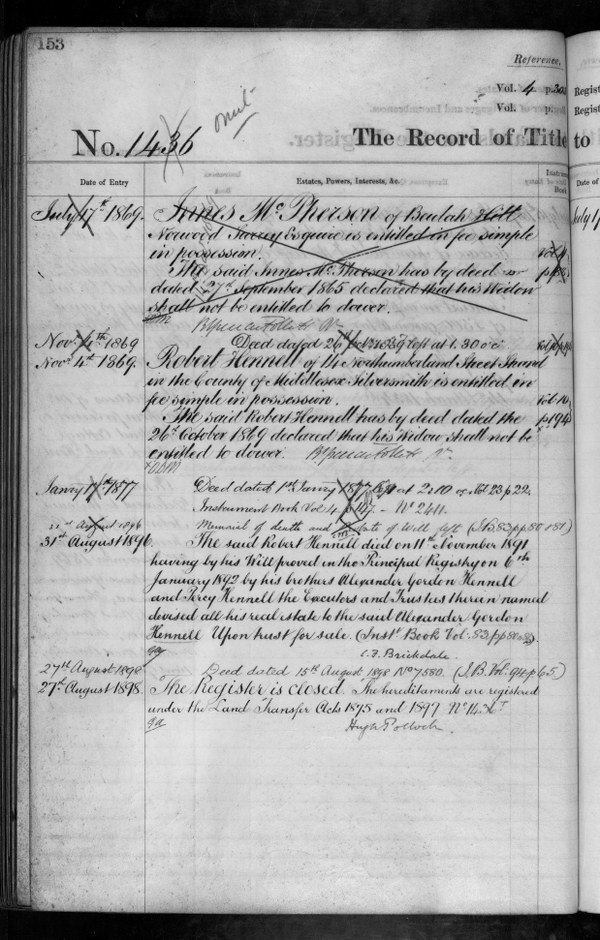 153
Reference.
Vol. 4. p.
Vol. p.
Regist
Regist
No. 1436
The Record of Title
to
Date of Entry
Estates, Powers, Interests, &c.
Date of
July 17th 1869.
Innes McPherson of Beulah Hill
Norwood Surrey Esquire is entitled in fee simple
in possession.
The said Innes McPherson has by deed
dated 27th September 1865 declared that his Widow
shall not be entitled to dower.
Nov. 4th 1869
Deed dated 26th Oct. 1869 left at 1.30 o'c
Nov. 4th 1869.
Robert Hennell of 14 Northumberland Street Strand
in the County of Middlesex Silversmith is entitled in
fee simple in possession.
Vol 10
The said Robert Hennell has by deed dated the
p 194
26th October 1869 declared that his Widow shall not be
entitled to dower.
Janry 17th 1877
Deed dated 1st Janry 1877 left at 2.10 Vol 23 p 22
Instrument Book Vol 4 p. 117. - No 2611.
21st August 1896
Memorial of death and of Will left (I.B. 83 pp 80 & 81)
31st August 1896
The said Robert Hennell died on 11th November 1891
having by his Will proved in the Principal Registry on 6th
January 1892 by his brothers Alexander Gordon Hennell
and Percy Hennell the Executors and Trustees therein named
devised all his real estate to the said Alexander Gordon
Hennell Upon trust for sale. (Inst. Book Vol. 83 pp 80 & 81)
C.F. Brickdale.
27th August 1898
Deed dated 15th August 1898 No 7580. (I.B. Vol. 94 p 65.)
27th August 1898.
The Register is closed. The hereditaments are registered
under the Land Transfer Acts 1875 and 1897 No 14
Hugh Pollock.